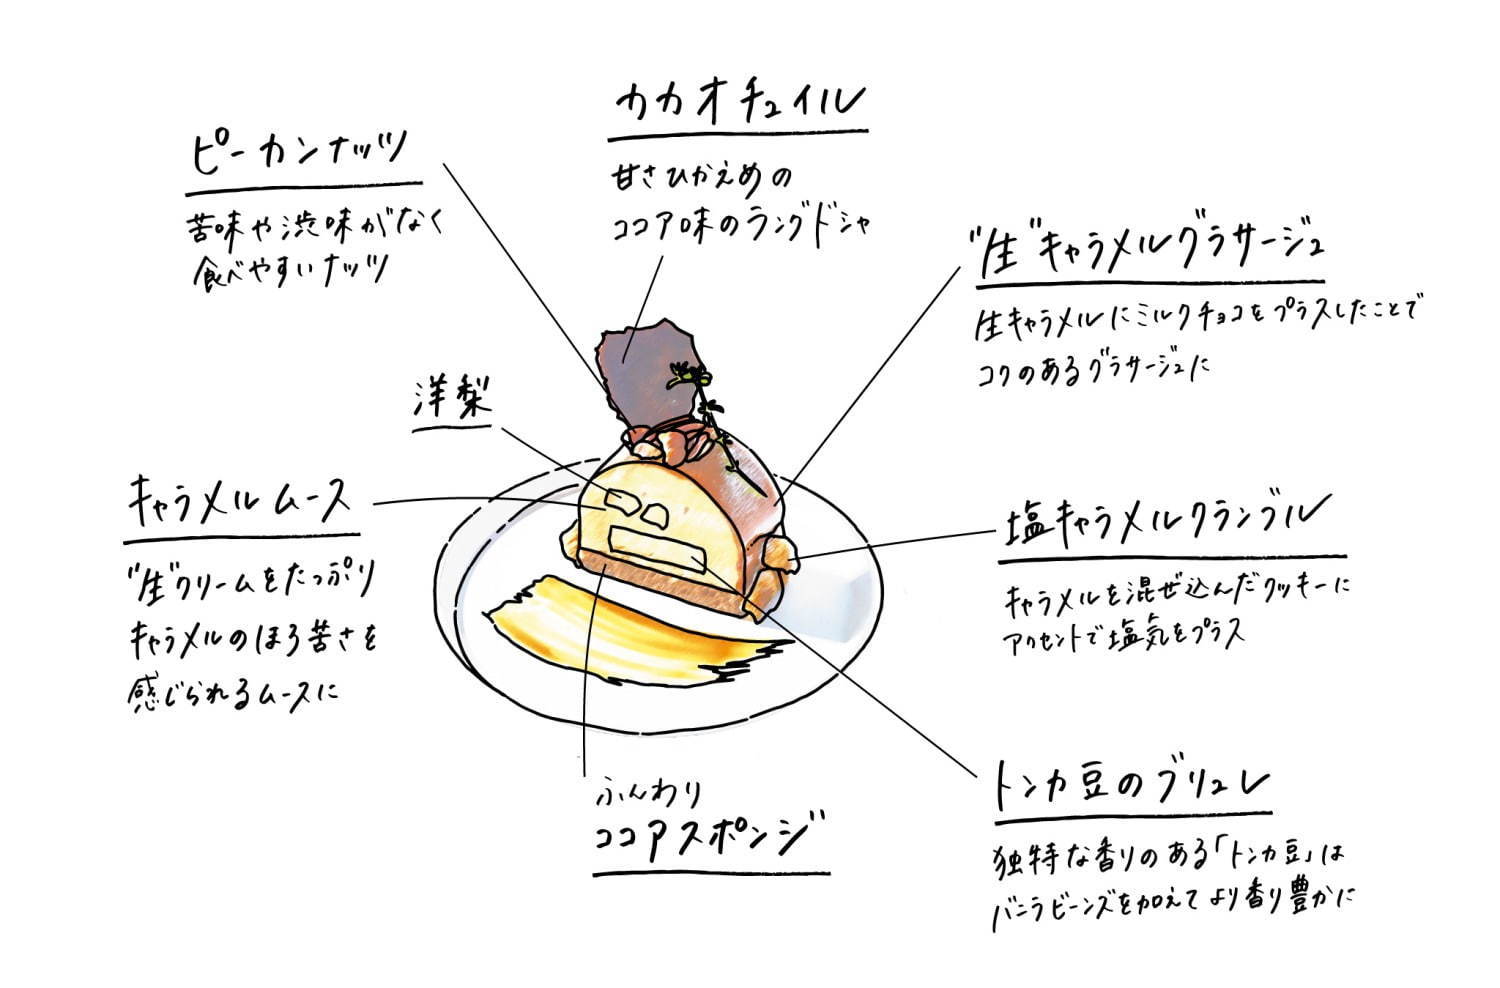 カカオチュイル
甘さひかえめの
ココア味のラングドシャ
ピーカンナッツ
苦味や渋味がなく
食べやすいナッツ
"生"キャラメルグラサージュ
生キャラメルにミルクチョコをプラスしたことで
コクのあるグラサージュに
洋梨
キャラメルムース
"生"クリームをたっぷり
キャラメルのほろ苦さを
感じられるムースに
塩キャラメルクランブル
キャラメルを混ぜ込んだクッキーに
アクセントで塩気をプラス
ふんわり
ココアスポンジ
トンカ豆のブリュレ
独特な香りのある「トンカ豆」は
バニラビーンズを加えてより香り豊かに